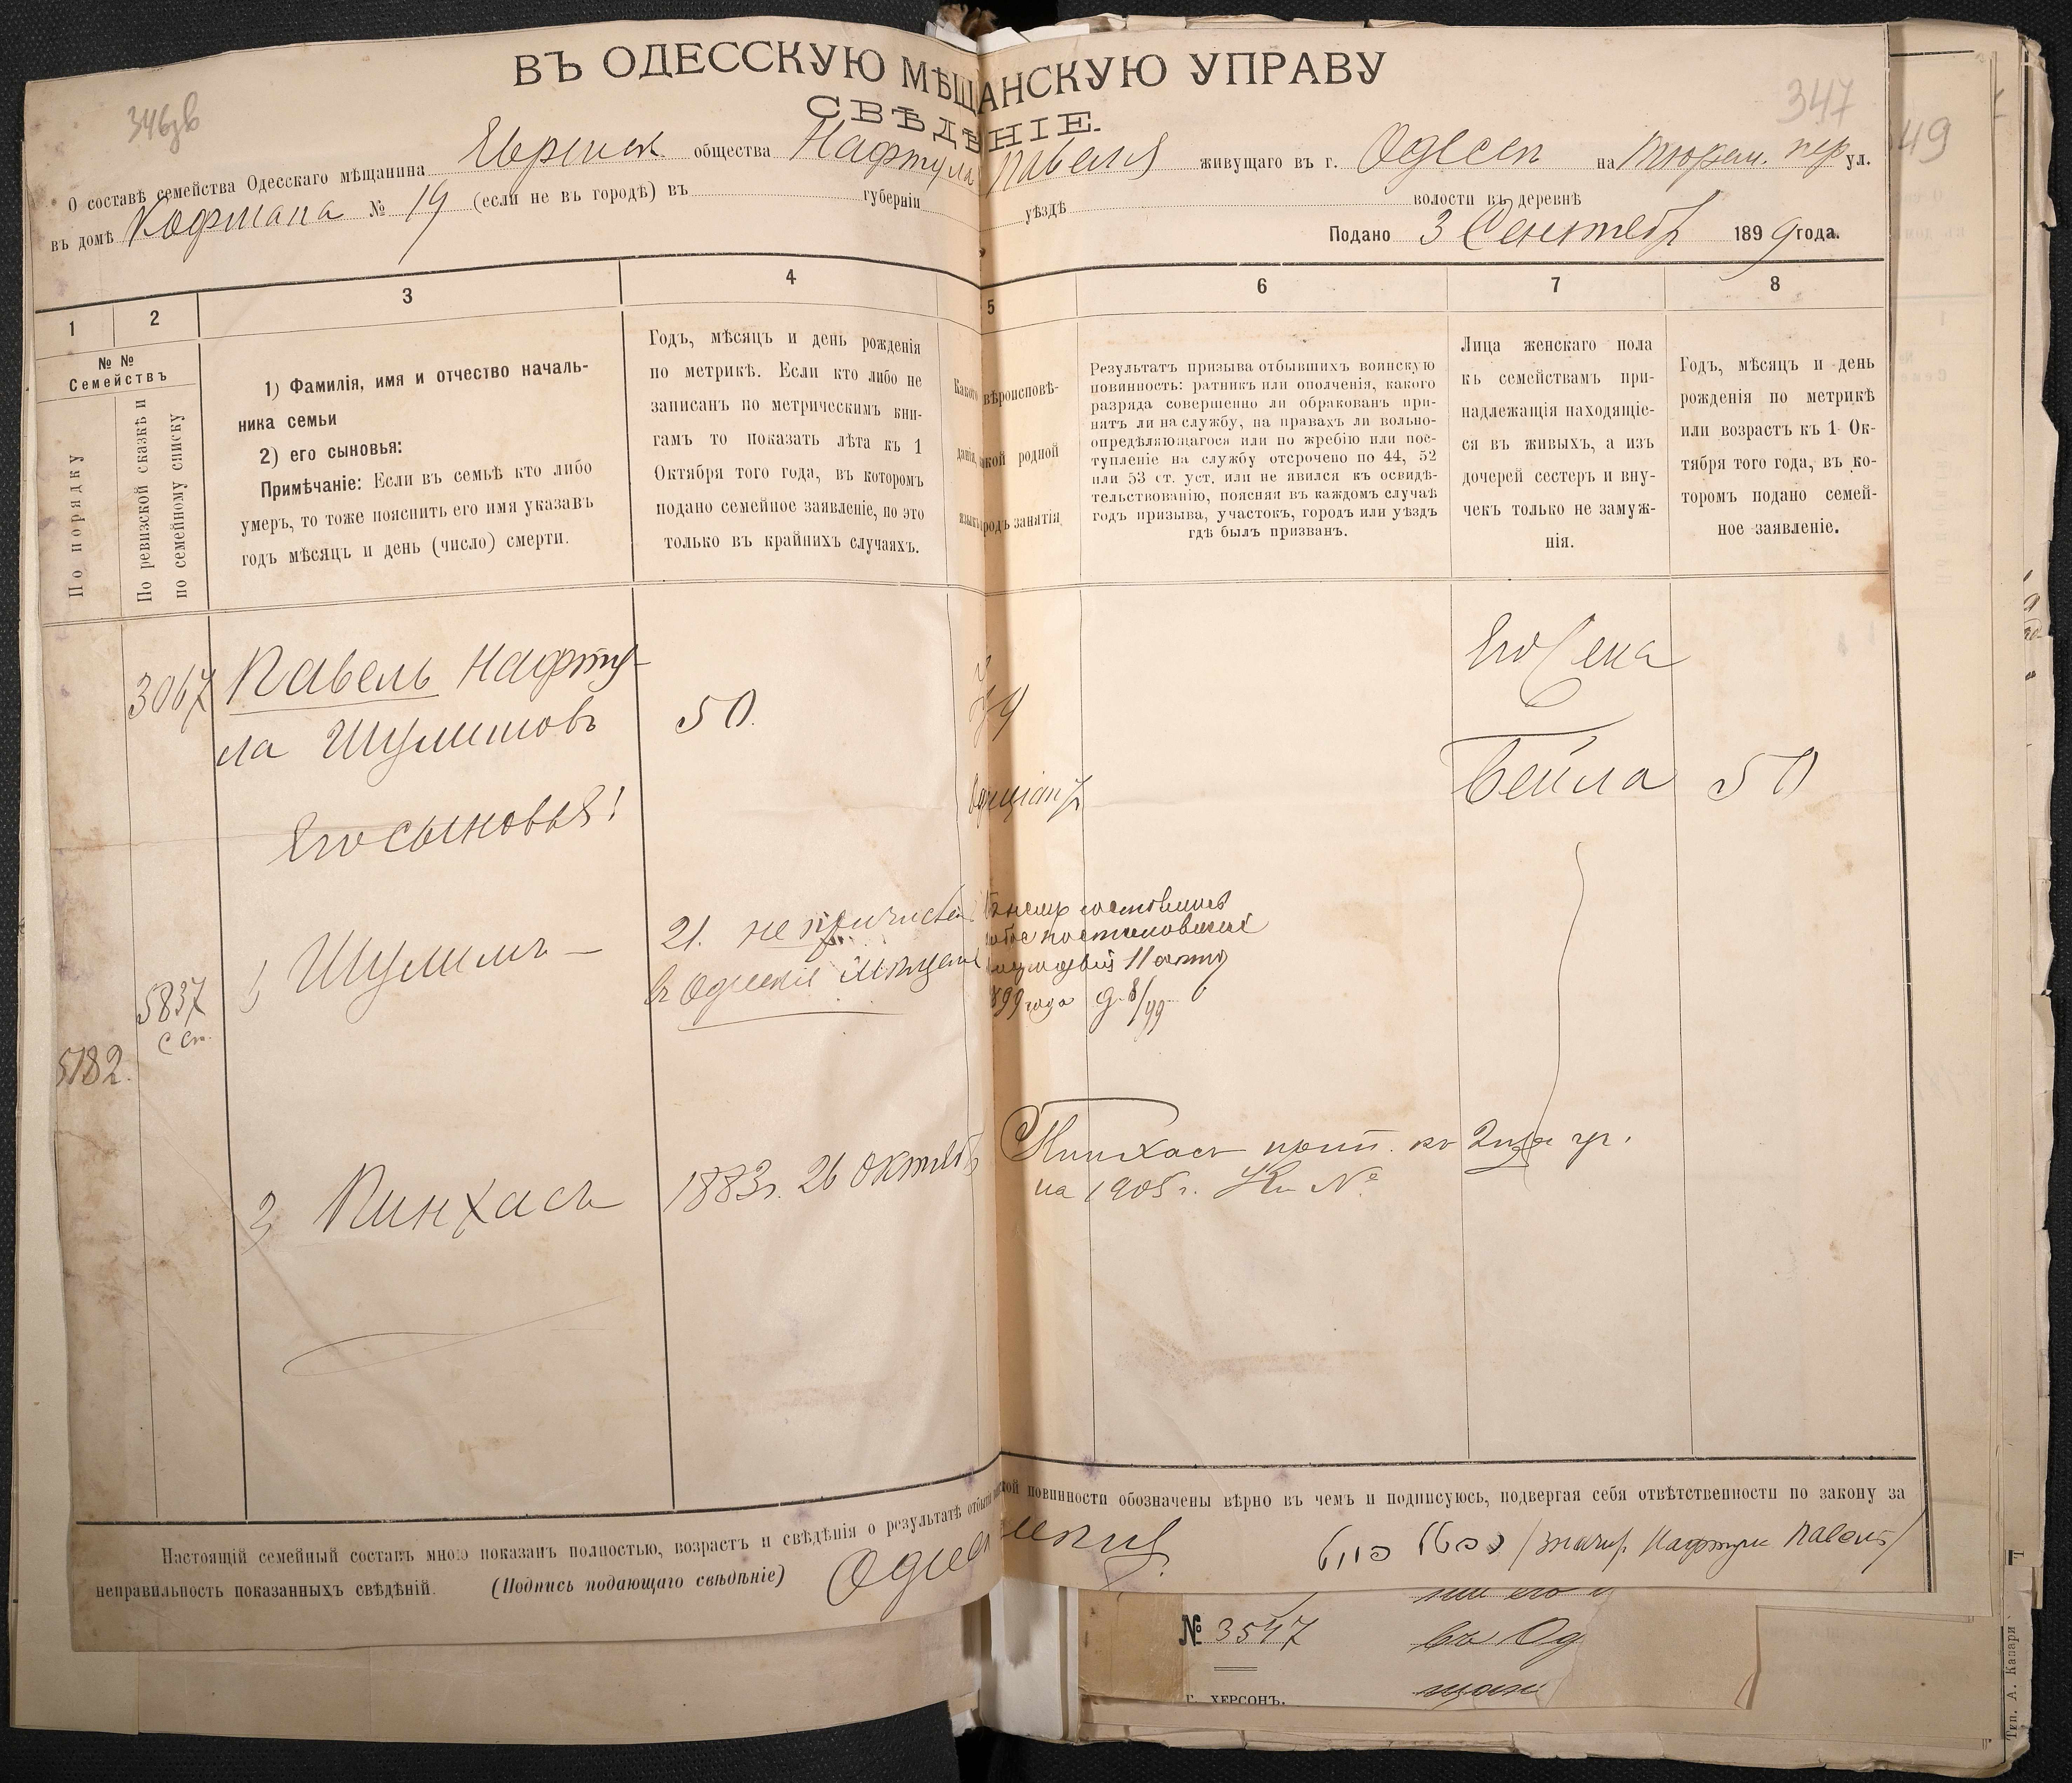 ВЪ ОДЕССКУЮ МѢЩАНСКУЮ УПРАВУ
СВѢДѢНІЕ.
346зв
347
49
О составѣ семейства Одесскаго мѣщанина Еврейск. общества Нафтула Павеля живущаго въ г. Одессѣ на пер ул.
въ домѣ Кофмана № 19 (если не въ городѣ) въ губерніи уѣздѣ волости въ деревнѣ
Подано 3 Сентябр 1899 года.
1
2
3
4
5
6
7
8
№ №
Семействъ
По порядку
По ревизской сказкѣ и
по семейному списку
1) Фамилія, имя и отчество началь-
ника семьи
2) его сыновья:
Примѣчаніе: Если въ семьѣ кто либо
умеръ, то тоже пояснить его имя указавъ
годъ мѣсяцъ и день (число) смерти.
Годъ, мѣсяцъ и день рожденія
по метрикѣ. Если кто либо не
записанъ по метрическимъ кни-
гамъ то показать лѣта къ 1
Октября того года, въ которомъ
подано семейное заявленіе, но это
только въ крайнихъ случаяхъ.
Какого вѣроисповѣ-
данія, какой родной
языкъ родъ занятія
Результатъ призыва отбывшихъ воинскую
повинность: ратникъ или ополченія, какого
разряда совершенно ли обракованъ при-
нятъ ли на службу, на правахъ ли вольно-
опредѣляющагося или по жребію или пос-
тупленіе на службу отсрочено по 44, 52
или 53 ст. уст. или не явился къ освидѣ-
тельствованію, поясняя въ каждомъ случаѣ
годъ призыва, участокъ, городъ или уѣздъ
гдѣ былъ призванъ.
Лица женскаго пола
къ семействамъ при-
надлежащія находящіе-
ся въ живыхъ, а изъ
дочерей сестеръ и вну-
чекъ только не замуж-
нія.
Годъ, мѣсяцъ и день
рожденія по метрикѣ
или возрастъ къ 1 Ок-
тября того года, въ ко-
торомъ подано семей-
ное заявленіе.
3067
Павель Нафту-
ла Шулимовъ
50.
Его жена
Бейла
50
Его сыновья:
1 Шулимъ —
21. не причислен
въ Одесскіе Мѣщане
постановленіе
899 года
5837
5182.
3 Пинхасъ
1883г. 26 Октябр
Пинхасъ
на 1905 г. №
Настоящій семейный составъ мною показанъ полностью, возрастъ и свѣдѣнія о результатѣ отбытія воинской повинности обозначены вѣрно въ чемъ и подписуюсь, подвергая себя отвѣтственности по закону за
неправильность показанныхъ свѣдѣній. (Подпись подающаго свѣдѣніе)
Нафтула Павель
№ 3547
въ Од
г. ХЕРСОНЪ.
Тип. А. Казари